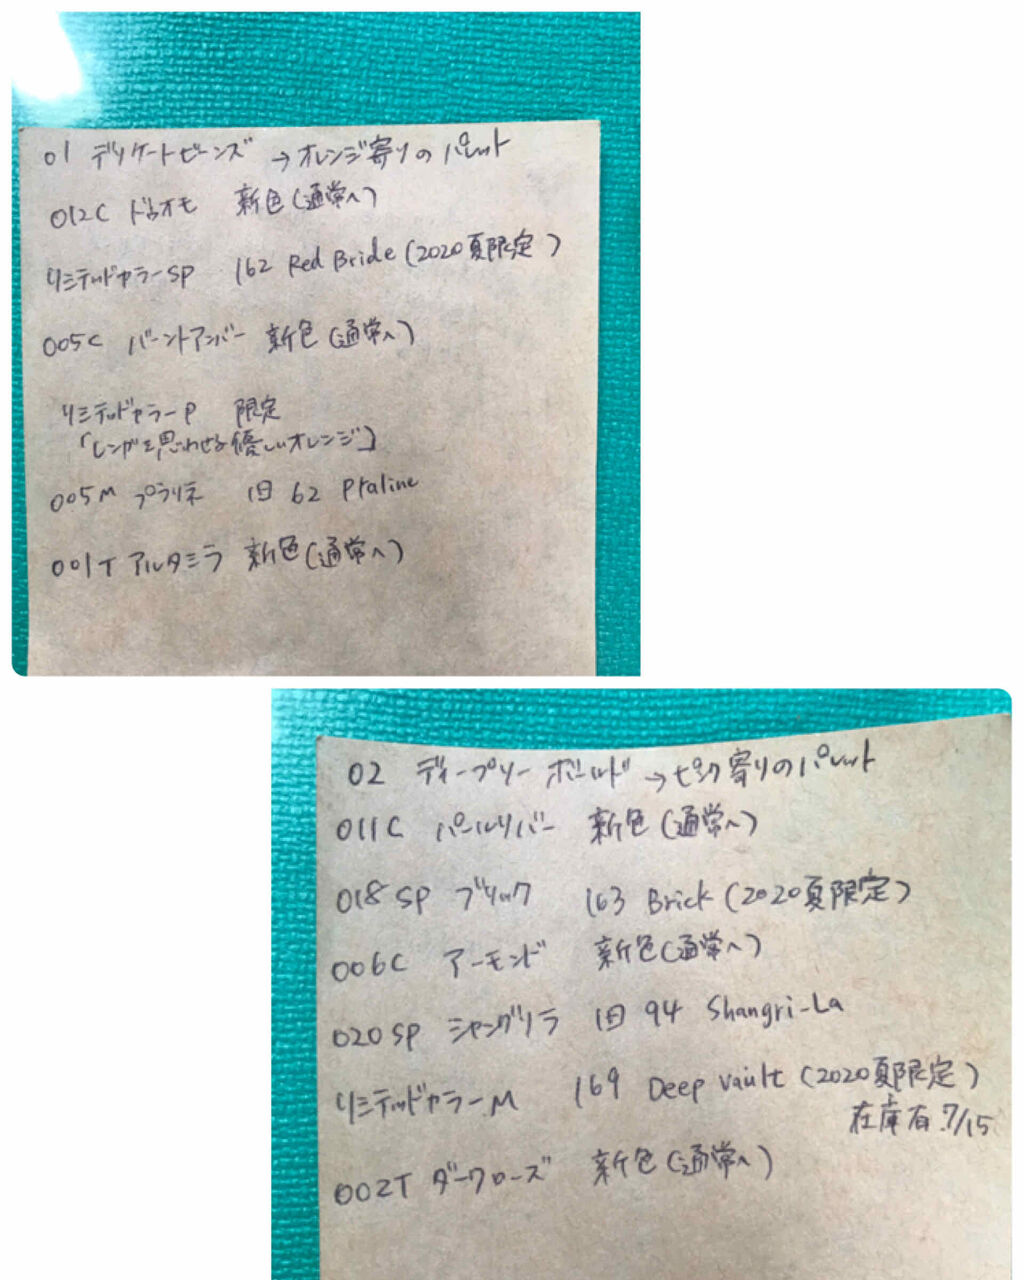 01 デリケートビーンズ →オレンジ寄りのパレット
012C ドゥオモ 新色(通常へ)
リミテッドカラーSP 162 Red Bride (2020夏限定)
005C バーントアンバー 新色(通常へ)
リミテッドカラーP 限定
「レンガを思わせる優しいオレンジ」
005M プラリネ 旧 62 Praline
001T アルタミラ 新色(通常へ)
02 ディープリーボールド →ピンク寄りのパレット
011C パールリバー 新色(通常へ)
018 SP ブリック 163 Brick (2020夏限定)
006C アーモンド 新色(通常へ)
020 SP シャングリラ 旧 94 Shangri-La
リミテッドカラーM 169 Deep Vault (2020夏限定)
在庫有.7/15
002T ダークローズ 新色(通常へ)